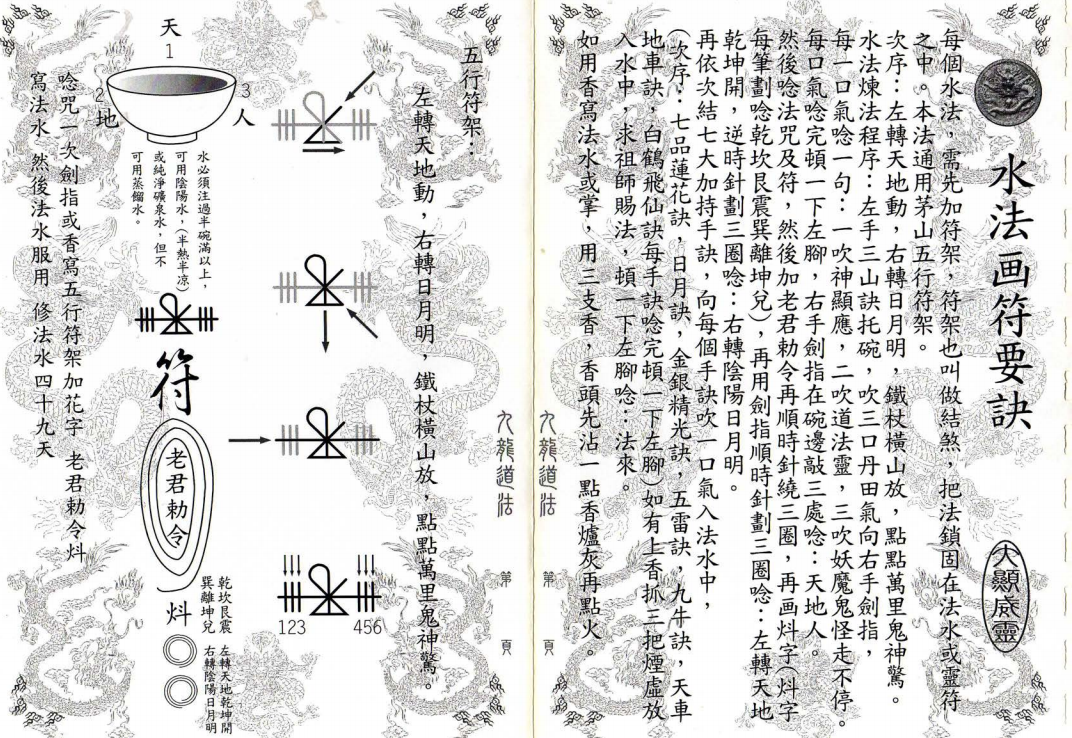 水法画符要訣
大顯威靈
每個水法，需先加符架，符架也叫做結煞，把法鎖固在法水或靈符
之中。本法通用茅山五行符架。
次序：左轉天地動，右轉日月明，鐵杖橫山放，點點萬里鬼神驚。
水法煉法程序：左手三山訣托碗，吹三口丹田氣向右手劍指，
每一口氣唸一句：一吹神顯應，二吹道法靈，三吹妖魔鬼怪走不停。
每口氣唸完頓一下左腳，右手劍指在碗邊敲三處唸：天地人。
然後唸法咒及符，然後加老君勅令再順時針繞三圈，再画炓字（炓字
每筆劃唸乾坎艮震巽離坤兌），再用劍指順時針劃三圈唸：左轉天地
乾坤開，逆時針劃三圈唸：右轉陰陽日月明。
再依次結七大加持手訣，向每個手訣吹一口氣入法水中，
（次序：七品蓮花訣，日月訣，金銀精光訣，五雷訣，九牛訣，天車
地車訣，白鶴飛仙訣每手訣唸完頓一下左腳）如有上香抓三把煙虛放
入水中，求祖師賜法，頓一下左腳唸：法來。
如用香寫法水或掌，用三支香，香頭先沾一點香爐灰再點火。
九龍道法
第 頁
九龍道法
第 頁
五行符架：
左轉天地動，右轉日月明，鐵杖橫山放，點點萬里鬼神驚。
123
456
天
1
2
地
3
人
水必須注過半碗滿以上，
可用陰陽水，（半熱半凉）
或純淨礦泉水，但不
可用蒸餾水。
符
老君勅令
炓
乾坎艮震
巽離坤兌
左轉天地乾坤開
右轉陰陽日月明
唸咒一次劍指或香寫五行符架加花字 老君勅令炓
寫法水 然後法水服用 修法水四十九天